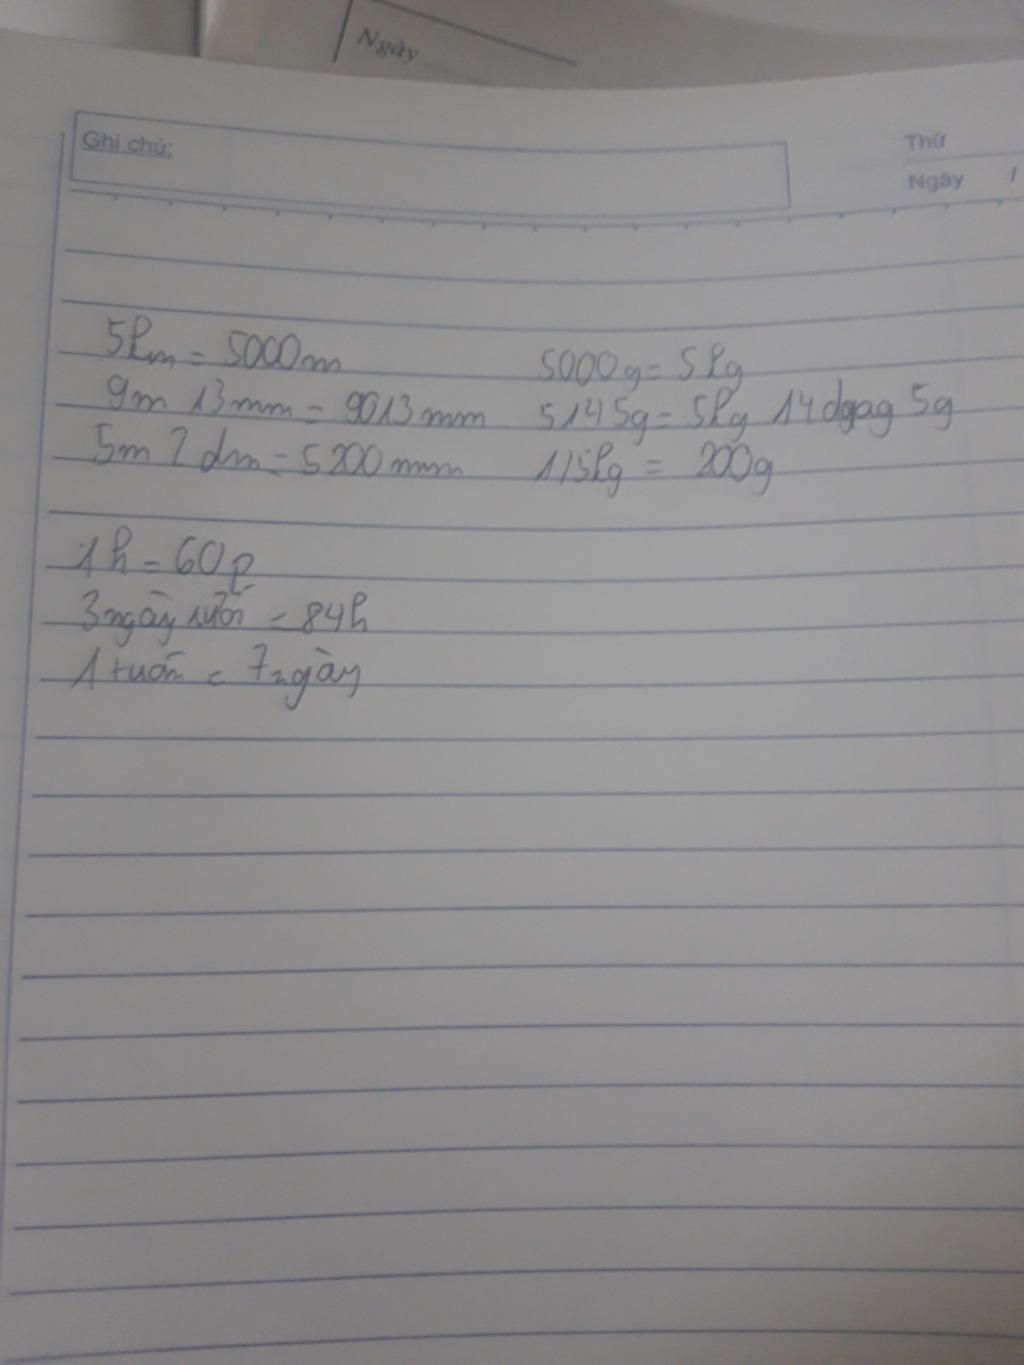 Ngày
Ghi chú:
Thứ
Ngày /
5km = 5000m
9m 13mm = 9013mm
5m 2dm = 5200mm
5000g = 5kg
5145g = 5kg 14dag 5g
1/5kg = 200g
1h = 60p
3 ngày rưỡi = 84h
1 tuần = 7 ngày